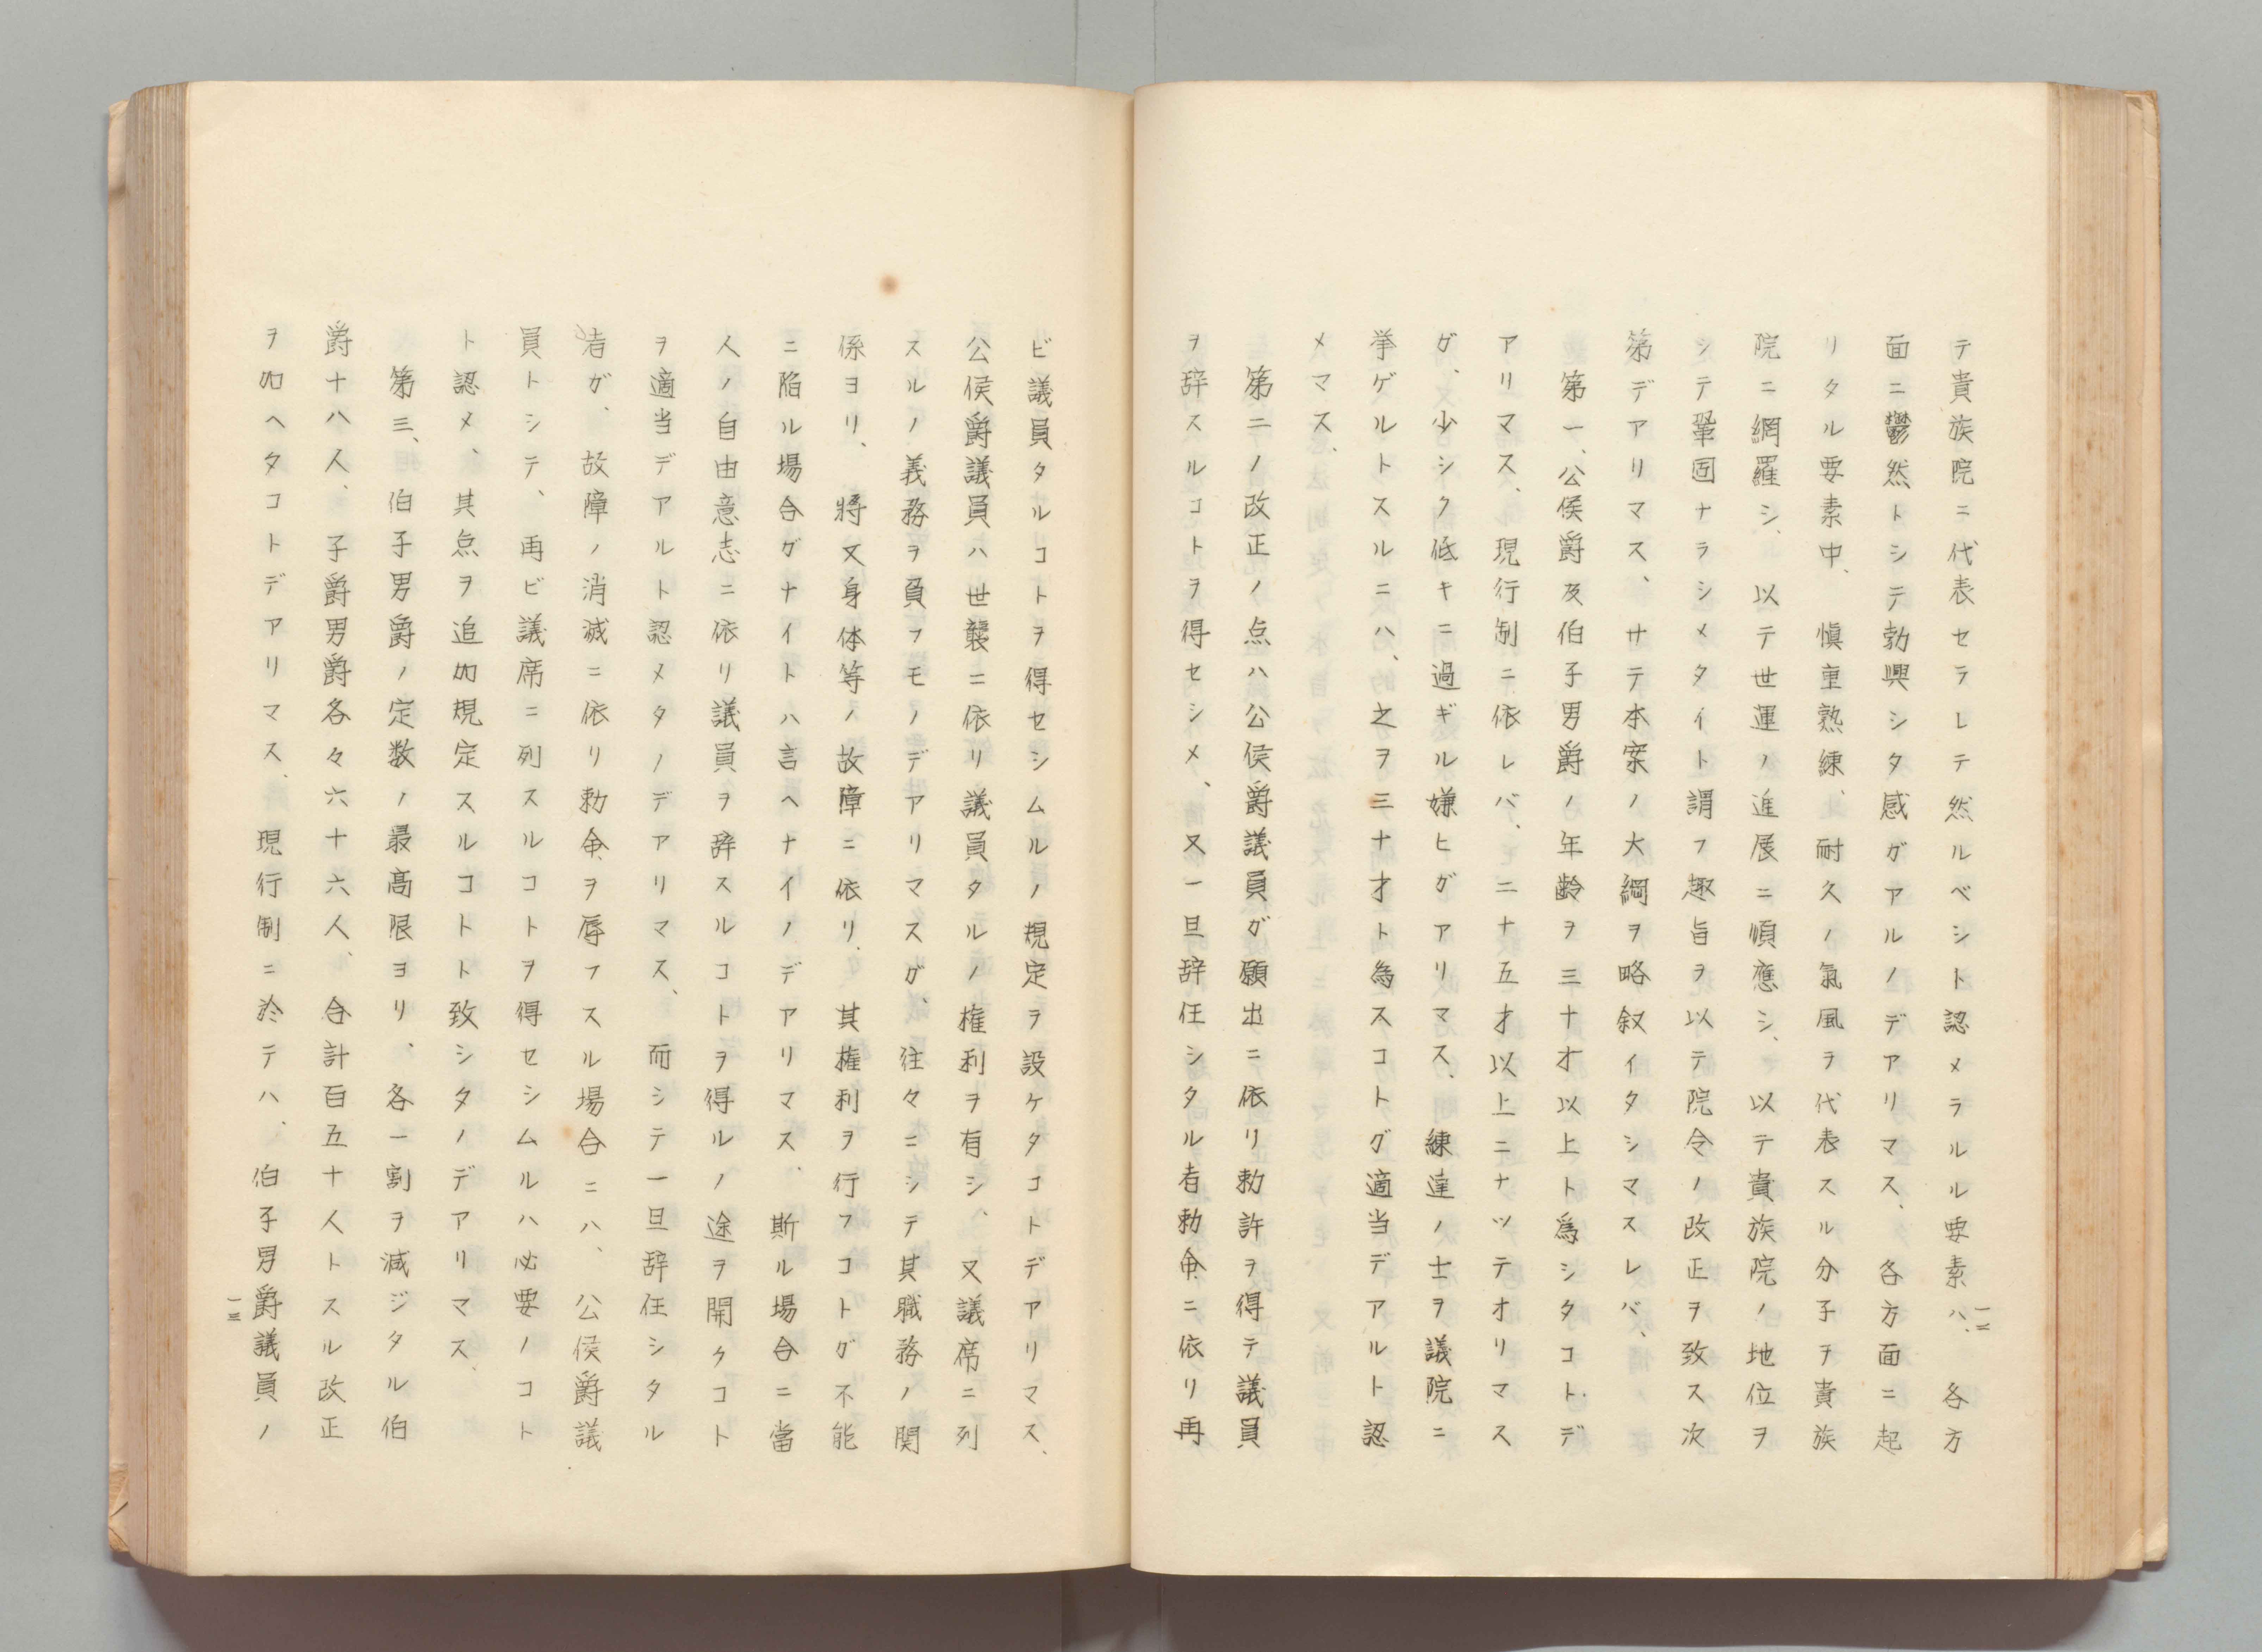 テ貴族院ニ代表セラレテ然ルベシト認メラルル要素ハ、各方
面ニ鬱然トシテ勃興シタ感ガアルノデアリマス、各方面ニ起
リタル要素中、慎重熟練、耐久ノ氣風ヲ代表スル分子ヲ貴族
院ニ網羅シ、以テ世運ノ進展ニ順應シ、以テ貴族院ノ地位ヲ
シテ鞏固ナラシメタイト謂フ趣旨ヲ以テ院令ノ改正ヲ致ス次
第デアリマス、サテ本案ノ大綱ヲ略叙イタシマスレバ、
第一、公侯爵及伯子男爵ノ年齢ヲ三十才以上ト為シタコトデ
アリマス、現行制ニ依レバ、二十五才以上ニナツテオリマス
ガ、少シク低キニ過ギル嫌ヒガアリマス、練達ノ士ヲ議院ニ
挙ゲルトスルニハ、之ヲ三十才ト為スコトガ適当デアルト認
メマス、
第二ノ改正ノ点ハ公侯爵議員ガ願出ニ依リ勅許ヲ得テ議員
ヲ辞スルコトヲ得セシメ、又一旦辞任シタル者勅命ニ依リ再
一二
ビ議員タルコトヲ得セシムルノ規定ヲ設ケタコトデアリマス、
公侯爵議員ハ世襲ニ依リ議員タルノ権利ヲ有シ、又議席ニ列
スルノ義務ヲ負フモノデアリマスガ、往々ニシテ其職務ノ関
係ヨリ、將又身体等ノ故障ニ依リ、其権利ヲ行フコトガ不能
ニ陥ル場合ガナイトハ言ヘナイノデアリマス、斯ル場合ニ當
人ノ自由意志ニ依リ議員ヲ辞スルコトヲ得ルノ途ヲ開クコト
ヲ適当デアルト認メタノデアリマス、而シテ一旦辞任シタル
者ガ、故障ノ消滅ニ依リ勅命ヲ辱フスル場合ニハ、公侯爵議
員トシテ、再ビ議席ニ列スルコトヲ得セシムルハ必要ノコト
ト認メ、其点ヲ追加規定スルコトト致シタノデアリマス、
第三、伯子男爵ノ定数ノ最高限ヨリ、各一割ヲ減ジタル伯
爵十八人、子爵男爵各々六十六人、合計百五十人トスル改正
ヲ加ヘタコトデアリマス、現行制ニ於テハ、伯子男爵議員ノ
一三